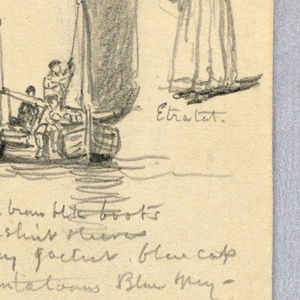 Etratat.
brown blk boots
shirt sleeves
jacket. blue cap
pantaloons Blue Grey -